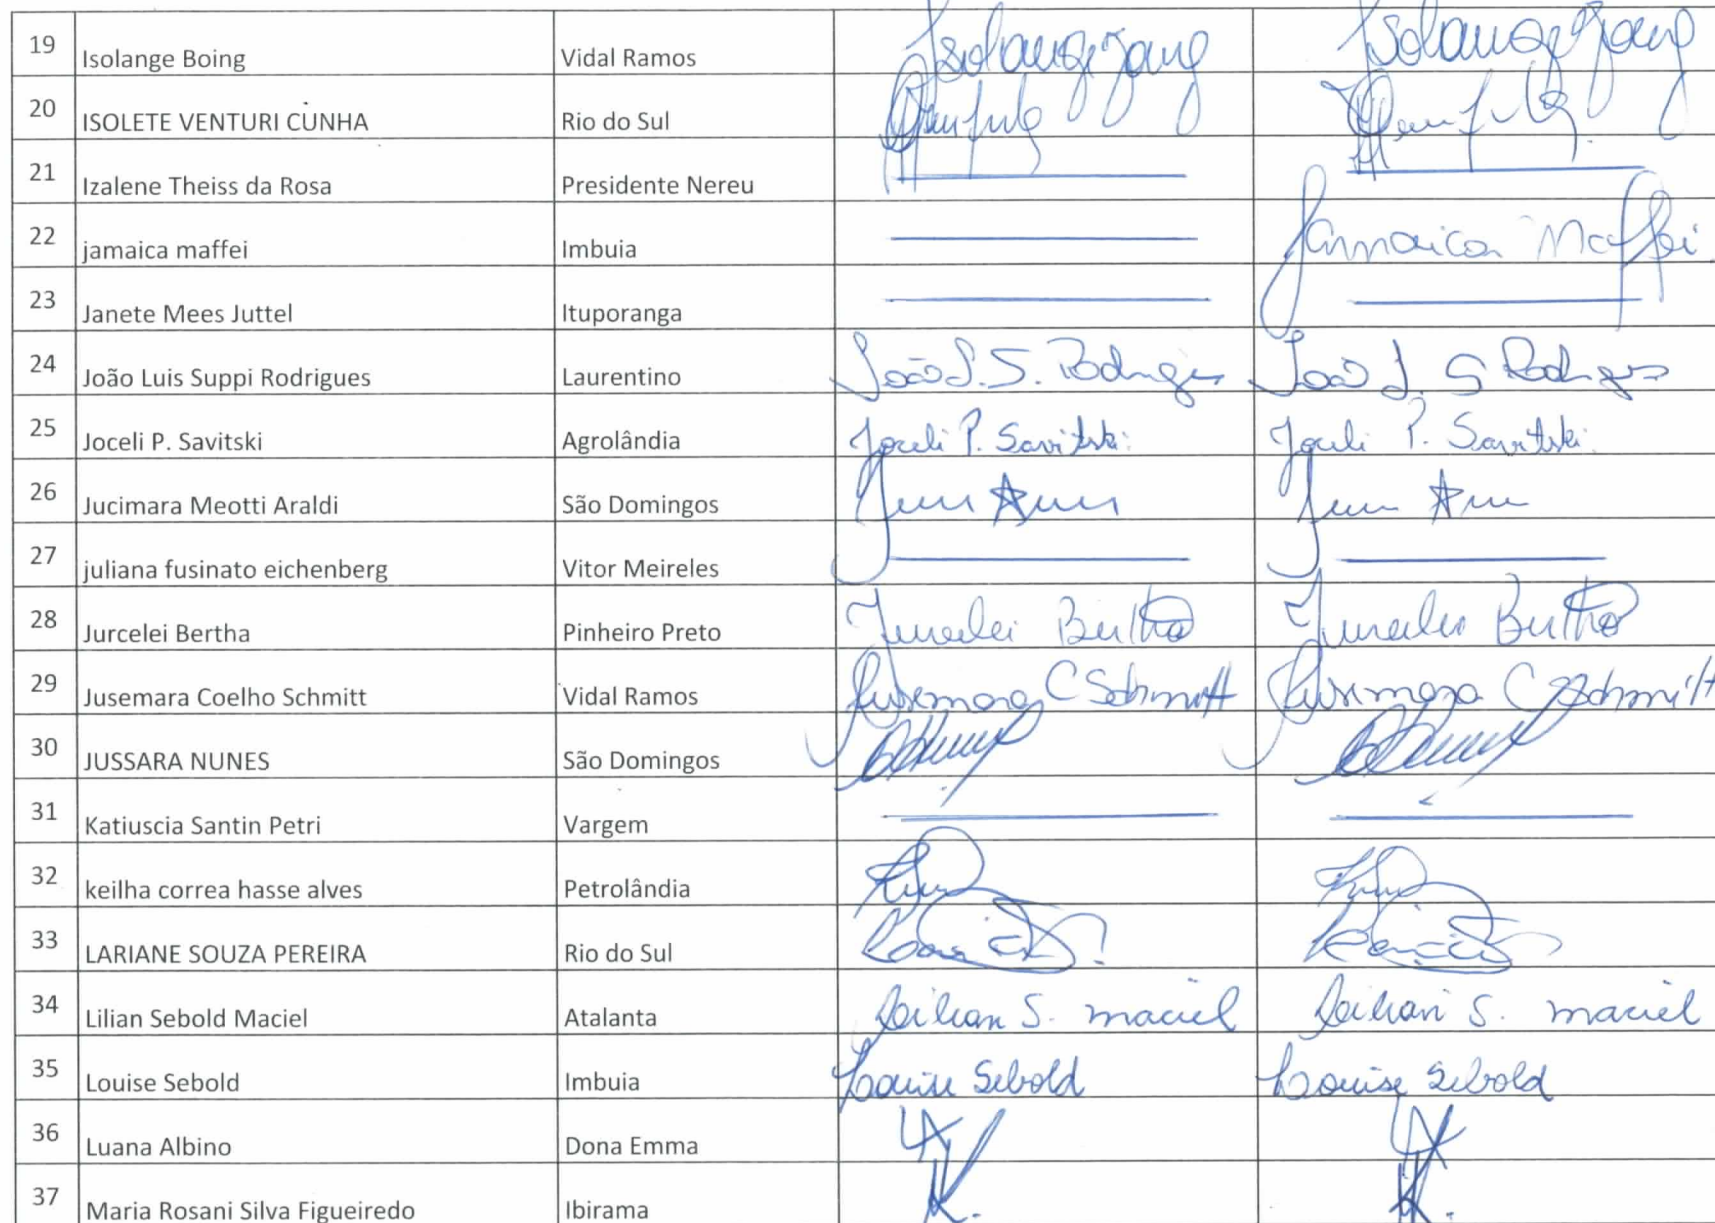 19 Isolange Boing Vidal Ramos
20 ISOLETE VENTURI CUNHA Rio do Sul
21 Izalene Theiss da Rosa Presidente Nereu
22 jamaica maffei Imbuia Jamaica Maffei
23 Janete Mees Juttel Ituporanga
24 João Luis Suppi Rodrigues Laurentino João L. S. Rodrigues João L. S Rodrigues
25 Joceli P. Savitski Agrolândia Joceli P. Savitski Joceli P. Savitski
26 Jucimara Meotti Araldi São Domingos
27 juliana fusinato eichenberg Vitor Meireles
28 Jurcelei Bertha Pinheiro Preto Jurcelei Bertha Jurcelei Bertha
29 Jusemara Coelho Schmitt Vidal Ramos Jusemara C Schmitt Jusemara C Schmitt
30 JUSSARA NUNES São Domingos
31 Katiuscia Santin Petri Vargem
32 keilha correa hasse alves Petrolândia
33 LARIANE SOUZA PEREIRA Rio do Sul
34 Lilian Sebold Maciel Atalanta Lilian S. Maciel Lilian S. Maciel
35 Louise Sebold Imbuia Louise Sebold Louise Sebold
36 Luana Albino Dona Emma
37 Maria Rosani Silva Figueiredo Ibirama